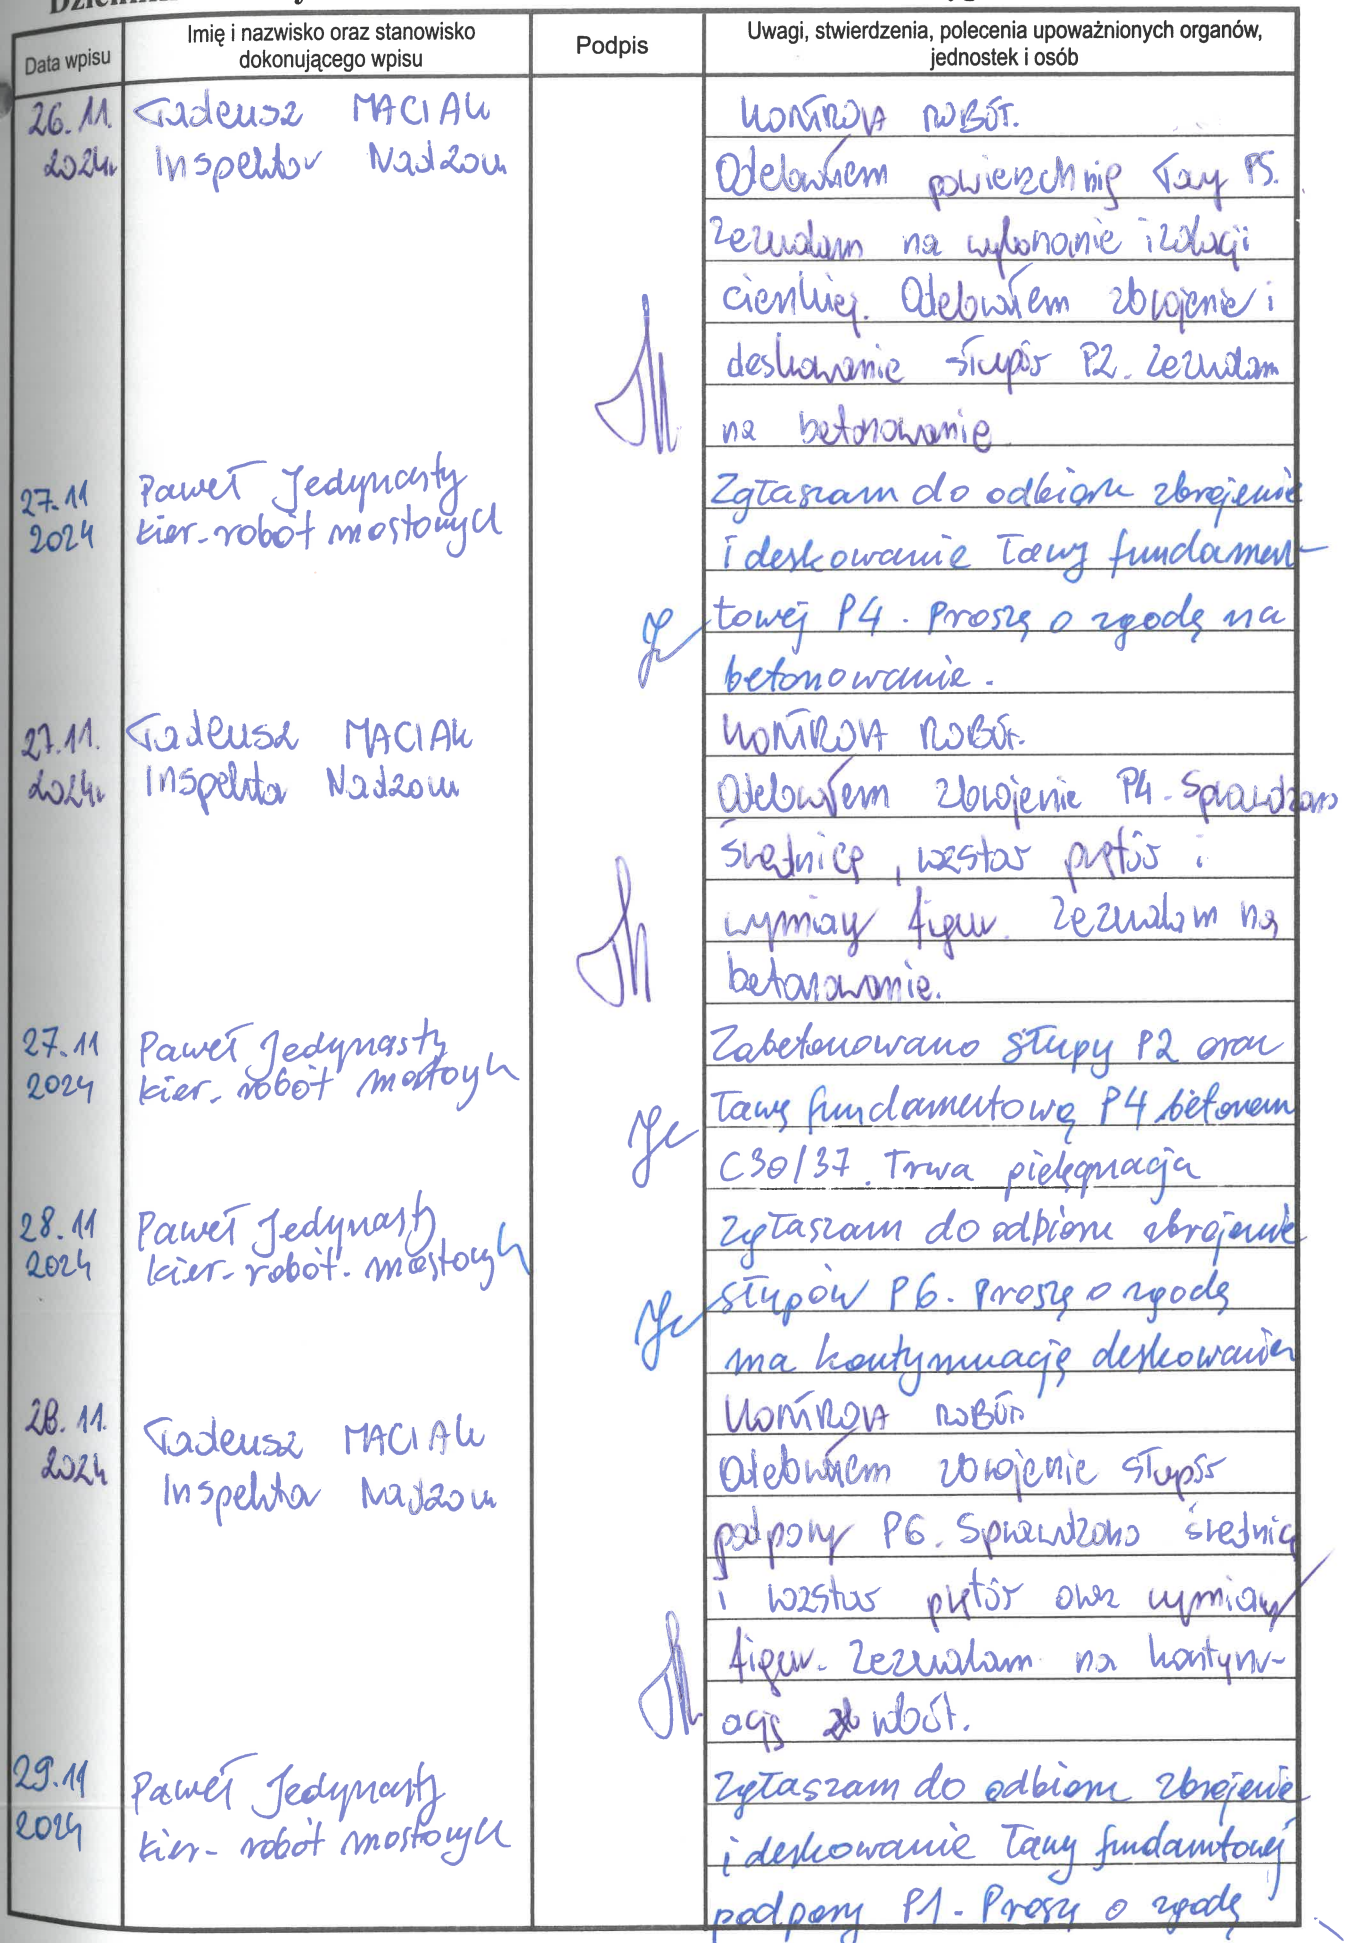 Data wpisu
Imię i nazwisko oraz stanowisko
dokonującego wpisu
Podpis
Uwagi, stwierdzenia, polecenia upoważnionych organów,
jednostek i osób
26.11.
2024r
Tadeusz MACIAK
Inspektor Nadzoru
KONTROLA ROBÓT.
Odebrałem powierzchnię ławy P5.
Zezwalam na wykonanie izolacji
cienkiej. Odebrałem zbrojenie i
deskowanie słupów P2. Zezwalam
na betonowanie.
27.11
2024
Paweł Jedynasty
kier. robót mostowych
Zgłaszam do odbioru zbrojenie
i deskowanie ławy fundamen-
towej P4. Proszę o zgodę na
betonowanie.
27.11.
2024r
Tadeusz MACIAK
Inspektor Nadzoru
KONTROLA ROBÓT.
Odebrałem zbrojenie P4. Sprawdzono
średnicę, rozstaw prętów i
wymiary figur. Zezwalam na
betonowanie.
27.11
2024
Paweł Jedynasty
kier. robót mostowych
Zabetonowano słupy P2 oraz
ławę fundamentową P4 betonem
C30/37. Trwa pielęgnacja
28.11
2024
Paweł Jedynasty
kier. robót. mostowych
Zgłaszam do odbioru zbrojenie
słupów P6. Proszę o zgodę
na kontynuację deskowania
28.11.
2024
Tadeusz MACIAK
Inspektor Nadzoru
KONTROLA ROBÓT
Odebrałem zbrojenie słupów
podpory P6. Sprawdzono średnicę
i rozstaw prętów oraz wymiary
figur. Zezwalam na kontynu-
ację robót.
29.11
2024
Paweł Jedynasty
kier. robót mostowych
Zgłaszam do odbioru zbrojenie
i deskowanie ławy fundamtowej
podpory P1. Proszę o zgodę